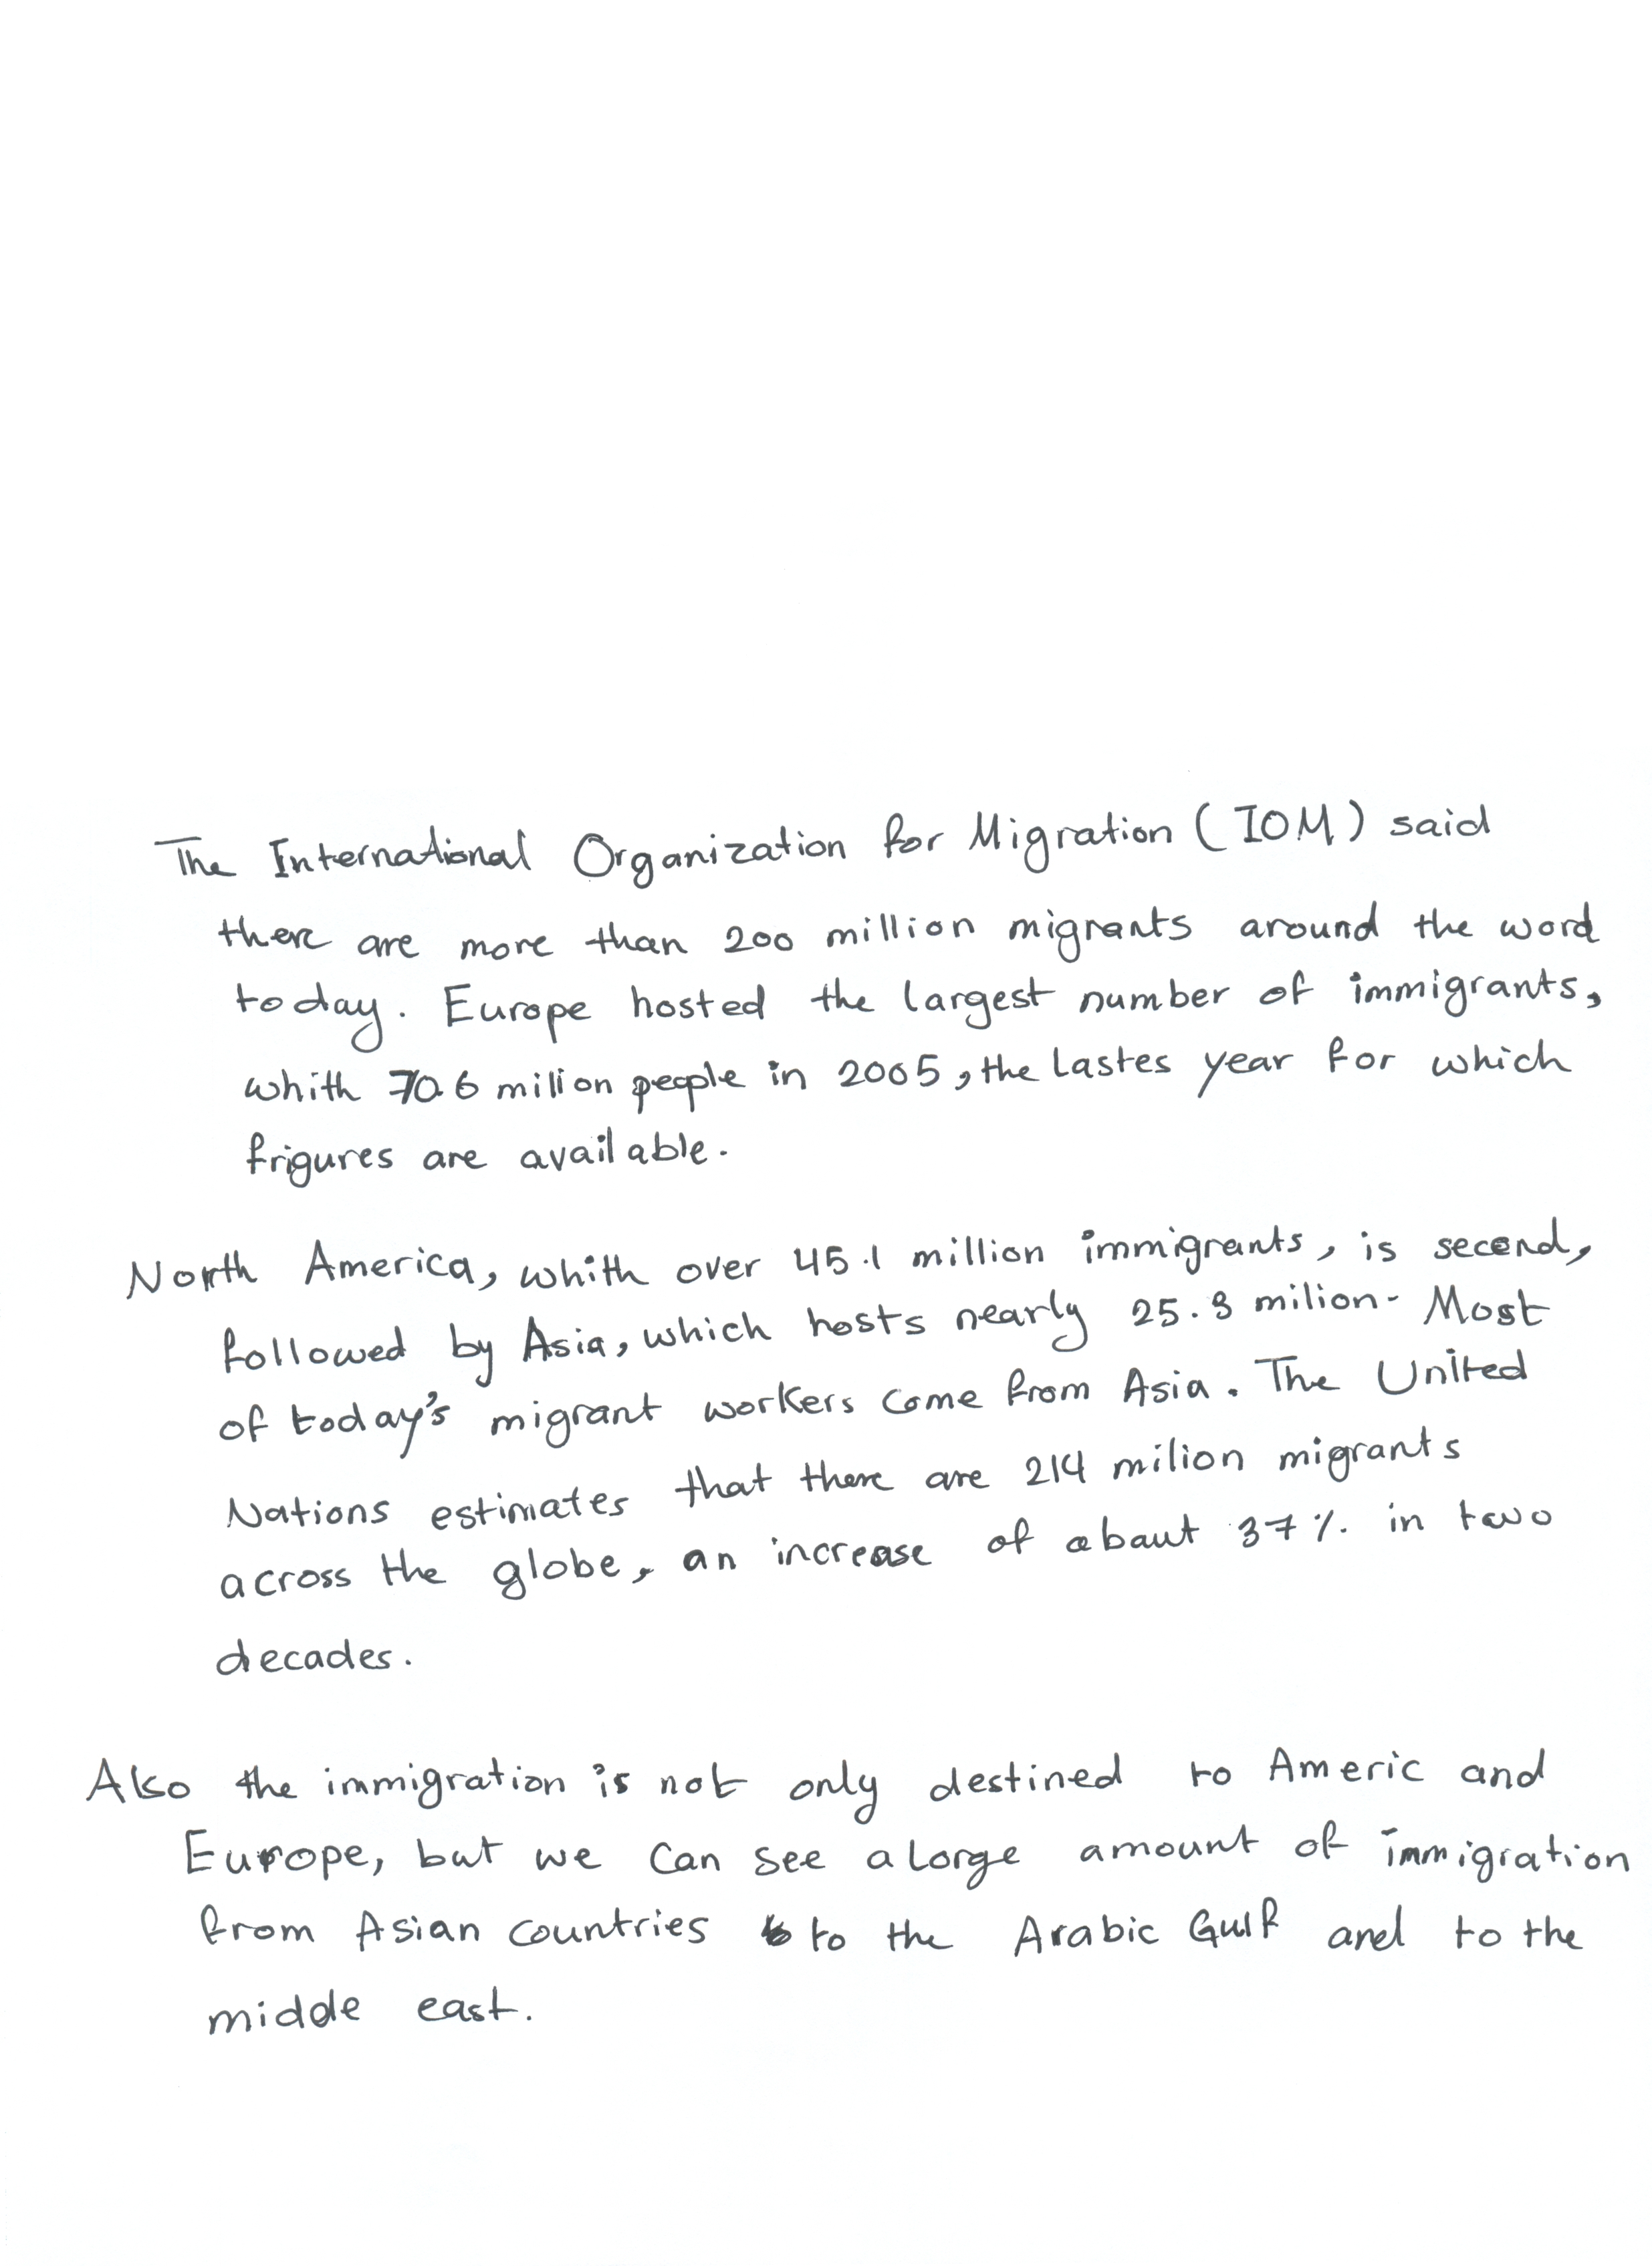 The International Organization for Migration (IOM) said
there are more than 200 million migrants around the word
today. Europe hosted the largest number of immigrants,
whith 70.6 milion people in 2005, the lastes year for which
frigures are available.
North America, whith over 45.1 million immigrants, is secend,
followed by Asia, which hosts nearly 25.3 milion. Most
of today's migrant workers come from Asia. The United
Nations estimates that there are 214 milion migrants
across the globe, an increase of abaut 37% in two
decades.
Also the immigration is not only destined to Americ and
Europe, but we can see a lorge amount of immigration
from Asian countries to the Arabic Gulf and to the
midde east.